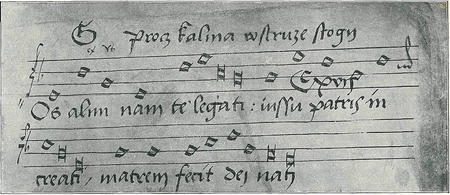 Procz kalina w struze stogy
Os alim nam te legati : iussu patris in
creati, matrem fecit dei nati